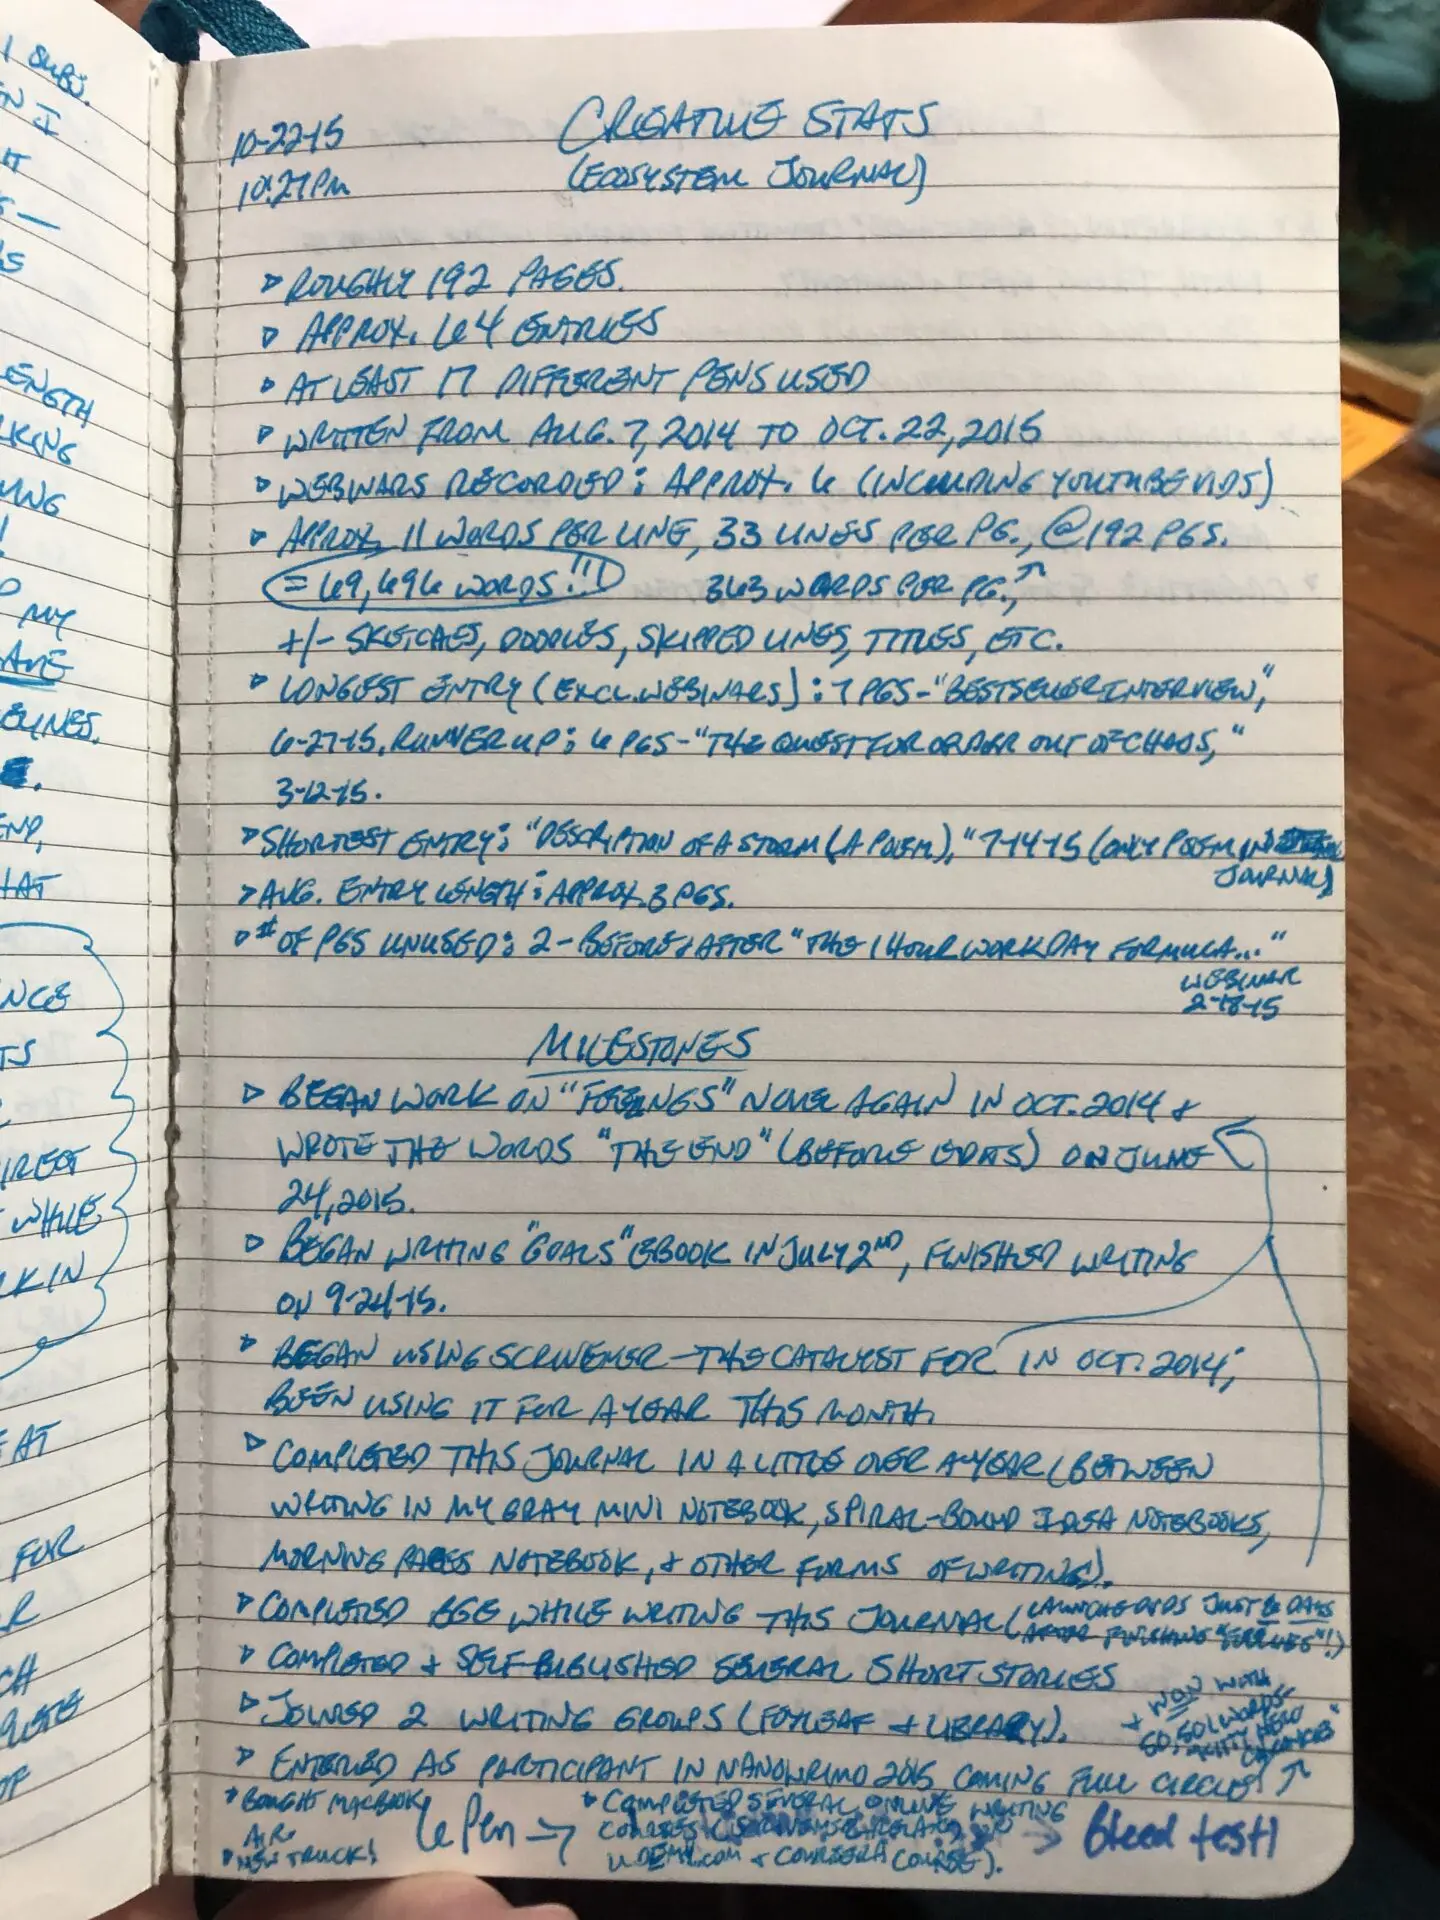 10-22-15
CREATIVE STATS
10:27PM
(ECOSYSTEM JOURNAL)
▹ ROUGHLY 192 PAGES.
▹ APPROX. 64 ENTRIES
▹ AT LEAST 17 DIFFERENT PENS USED
▹ WRITTEN FROM AUG. 7, 2014 TO OCT. 22, 2015
▹ WEBINARS RECORDED: APPROX. 6 (INCLUDING YOUTUBE VIDS)
▹ APPROX. 11 WORDS PER LINE, 33 LINES PER PG., @192 PGS.
= 69,696 WORDS!!! 363 WORDS PER PG.,
+/- SKETCHES, DOODLES, SKIPPED LINES, TITLES, ETC.
▹ LONGEST ENTRY (EXCL. WEBINARS): 7 PGS - "BESTSELLER INTERVIEW,"
6-27-15. RUNNER UP: 6 PGS - "THE QUEST FOR ORDER OUT OF CHAOS,"
3-12-15.
▹ SHORTEST ENTRY: "DESCRIPTION OF A STORM (A POEM)," 7-14-15 (ONLY POEM IN
JOURNAL)
▹ AVG. ENTRY LENGTH: APPROX. 3 PGS.
▹ # OF PGS UNUSED: 2 - BEFORE & AFTER "THE 1 HOUR WORKDAY FORMULA..."
WEBINAR
2-18-15
MILESTONES
▹ BEGAN WORK ON "FEELINGS" NOVEL AGAIN IN OCT. 2014 &
WROTE THE WORDS "THE END" (BEFORE EDITS) ON JUNE
24, 2015.
▹ BEGAN WRITING "GOALS" EBOOK IN JULY 2ND, FINISHED WRITING
ON 9-24-15.
▹ BEGAN USING SCRIVENER - THE CATALYST FOR IN OCT. 2014;
BEEN USING IT FOR A YEAR THIS MONTH.
▹ COMPLETED THIS JOURNAL IN A LITTLE OVER A YEAR (BETWEEN
WRITING IN MY GRAY MINI NOTEBOOK, SPIRAL-BOUND IDEA NOTEBOOKS,
MORNING PAGES NOTEBOOK, & OTHER FORMS OF WRITING).
▹ COMPLETED WHILE WRITING THIS JOURNAL ( JUST DAYS
AFTER FINISHING
▹ COMPLETED & SELF-PUBLISHED SEVERAL SHORT STORIES
▹ JOINED 2 WRITING GROUPS (FOYLEAF & LIBRARY).
& WON WITH
50,501 WORDS
▹ ENTERED AS PARTICIPANT IN NANOWRIMO 2015, COMING FULL CIRCLE!
▹ BOUGHT MACBOOK
AIR.
▹ NEW TRUCK!
Le Pen →
▹ COMPLETED SEVERAL ONLINE WRITING
COURSES
UDEMY.COM & COURSERA COURSE).
→ Bleed test!
1 SUBJ.
IT
MY
HAT
WHILE
AT
FOR
OF